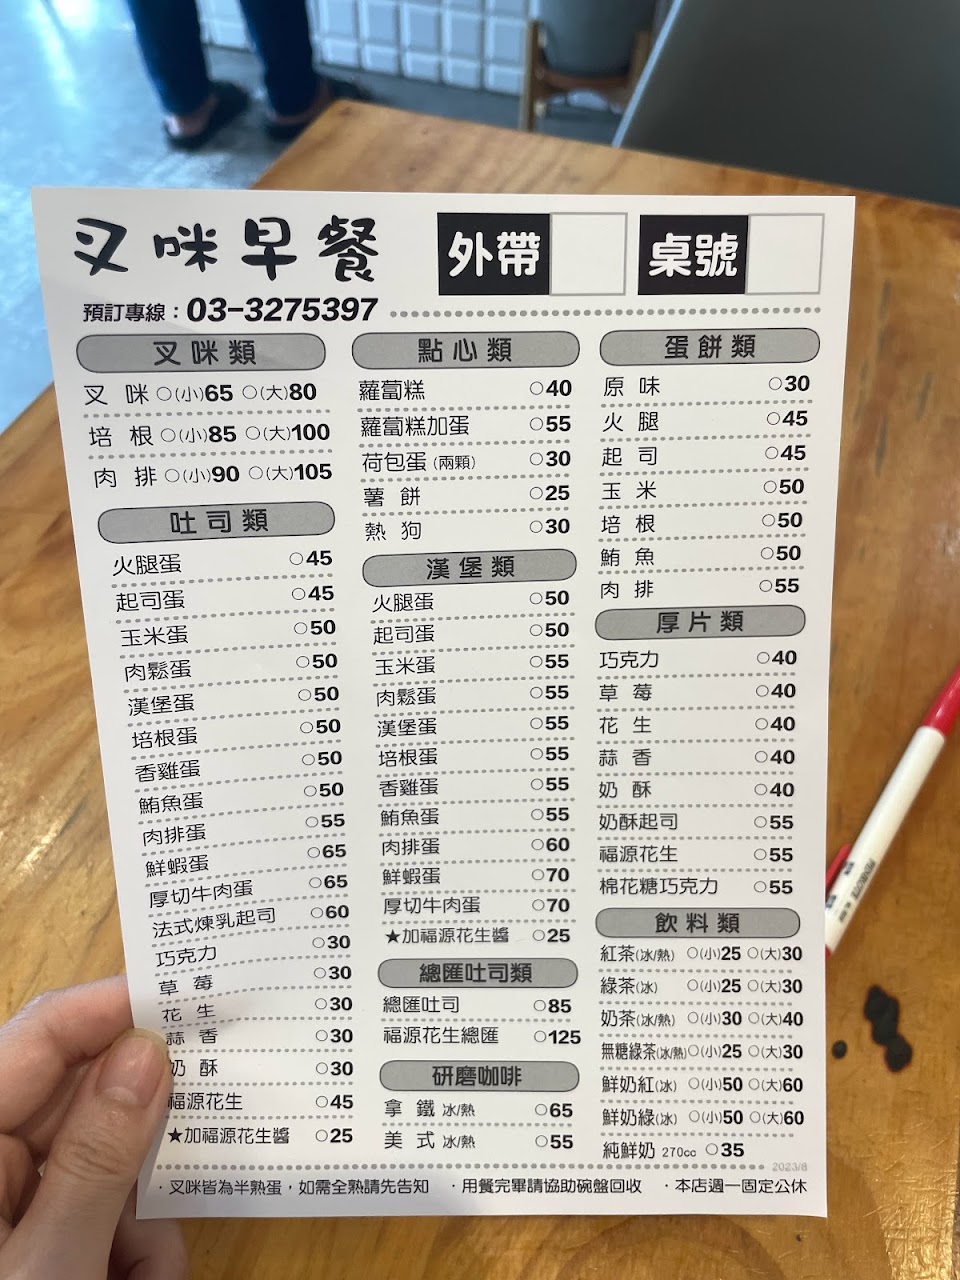 叉咪早餐
外帶
桌號
預訂專線：03-3275397
叉咪類
叉咪 ○(小)65 ○(大)80
培根 ○(小)85 ○(大)100
肉排 ○(小)90 ○(大)105
吐司類
火腿蛋 ○45
起司蛋 ○45
玉米蛋 ○50
肉鬆蛋 ○50
漢堡蛋 ○50
培根蛋 ○50
香雞蛋 ○50
鮪魚蛋 ○50
肉排蛋 ○55
鮮蝦蛋 ○65
厚切牛肉蛋 ○65
法式煉乳起司 ○60
巧克力 ○30
草莓 ○30
花生 ○30
蒜香 ○30
奶酥 ○30
福源花生 ○45
★加福源花生醬 ○25
點心類
蘿蔔糕 ○40
蘿蔔糕加蛋 ○55
荷包蛋(兩顆) ○30
薯餅 ○25
熱狗 ○30
漢堡類
火腿蛋 ○50
起司蛋 ○50
玉米蛋 ○55
肉鬆蛋 ○55
漢堡蛋 ○55
培根蛋 ○55
香雞蛋 ○55
鮪魚蛋 ○55
肉排蛋 ○60
鮮蝦蛋 ○70
厚切牛肉蛋 ○70
★加福源花生醬 ○25
總匯吐司類
總匯吐司 ○85
福源花生總匯 ○125
研磨咖啡
拿鐵 冰/熱 ○65
美式 冰/熱 ○55
蛋餅類
原味 ○30
火腿 ○45
起司 ○45
玉米 ○50
培根 ○50
鮪魚 ○50
肉排 ○55
厚片類
巧克力 ○40
草莓 ○40
花生 ○40
蒜香 ○40
奶酥 ○40
奶酥起司 ○55
福源花生 ○55
棉花糖巧克力 ○55
飲料類
紅茶(冰/熱) ○(小)25 ○(大)30
綠茶(冰) ○(小)25 ○(大)30
奶茶(冰/熱) ○(小)30 ○(大)40
無糖綠茶(冰/熱) ○(小)25 ○(大)30
鮮奶紅(冰) ○(小)50 ○(大)60
鮮奶綠(冰) ○(小)50 ○(大)60
純鮮奶 270cc ○35
2023/8
·叉咪皆為半熟蛋，如需全熟請先告知 ·用餐完畢請協助碗盤回收 ·本店週一固定公休